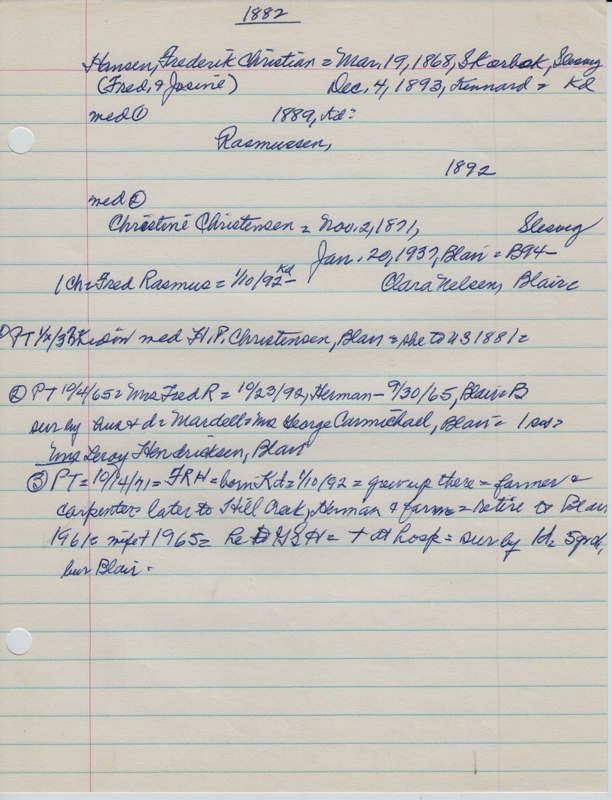 1882
Hansen, Frederik Christian = Mar. 19, 1868, Skarbak, Slesvig
(Fred, & Josine) Dec. 4, 1893, Kennard = Kd
med ① 1889, Kd =
Rasmussen,
1892
med ②
Christine Christensen = Nov. 2, 1871, Slesvig
Jan. 20, 1937, Blair = B94-
1 ch = Fred Rasmus = 1/10/92 - Kd Clara Nelsen, Blair
① PT med H.P. Christensen, Blair = she to US 1881 =
② PT 10/4/65 = Mrs Fred R = 10/23/92, Herman - 9/30/65, Blair = B
sur by hus + d = Mardell = Mrs George Carmichael, Blair = 1 sis =
Mrs Leroy Hendricksen, Blair
③ PT = 10/14/71 = FRH = born Kd = 1/10/92 = grew up there = farmer &
carpenter = later to Hill Crak, Herman & farm = retire to Blair
1961 = wife + 1965 = he to = + at hosp = sur by 1d, 5 grch,
bur Blair -